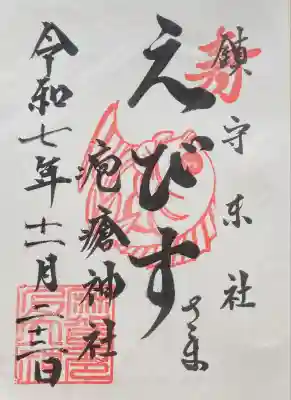 鎮守東社
えびすさま
疱瘡神社
令和七年十一月二十二日